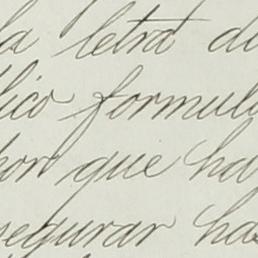 la letra d
lico formul
por que ha
segurar has